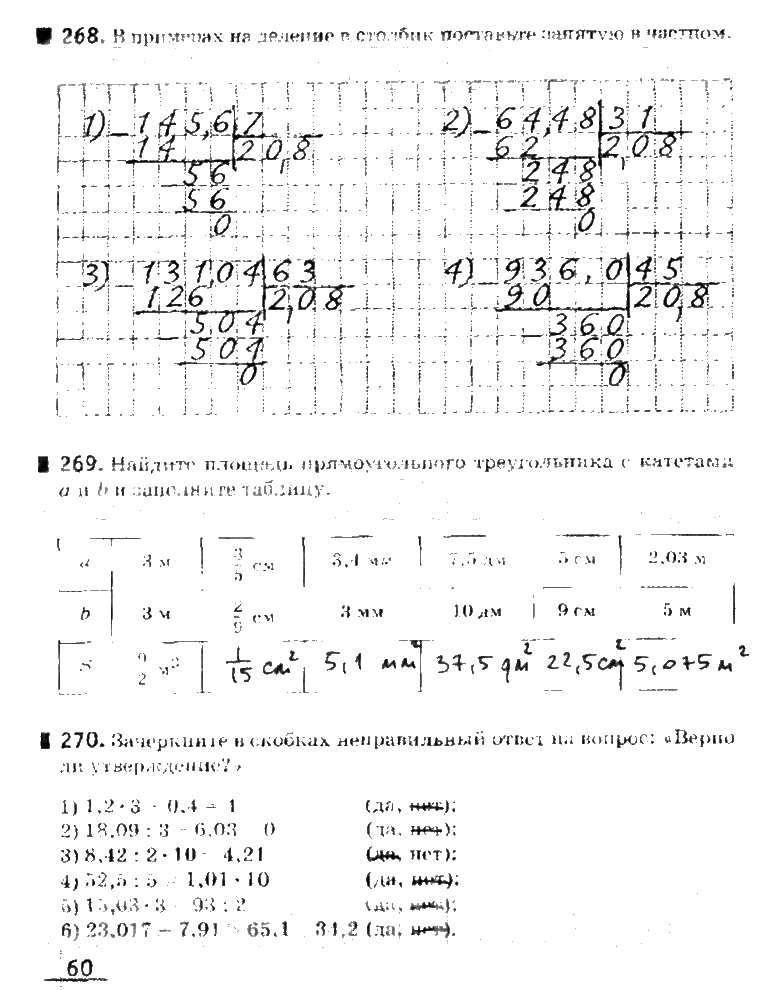 268. В примерах на деление в столбик поставьте запятую в частном.
1) 145,6 7 2) 64,48 31
14 20,8 62 2,08
56 248
56 248
0 0
3) 131,04 63 4) 936,0 45
126 2,08 90 20,8
504 360
504 360
0 0
269. Найдите площадь прямоугольного треугольника с катетами
a и b и заполните таблицу.
a 3 м 3/5 см 3,4 мм 7,5 дм 5 см 2,03 м
b 3 м 2/9 см 3 мм 10 дм 9 см 5 м
S 9/2 м² 1/15 см² 5,1 мм² 37,5 дм² 22,5 см² 5,075 м²
270. Зачеркните в скобках неправильный ответ на вопрос: «Верно
ли утверждение?»
1) 1,2 · 3 0,4 = 1 (да, нет);
2) 18,09 : 3 - 6,03 0 (да, нет);
3) 8,42 : 2 · 10 4,21 (да, нет);
4) 52,5 : 5 1,01 · 10 (да, нет);
5) 15,03 · 3 93 : 2 (да, нет);
6) 23,017 - 7,91 65,1 31,2 (да, нет).
60